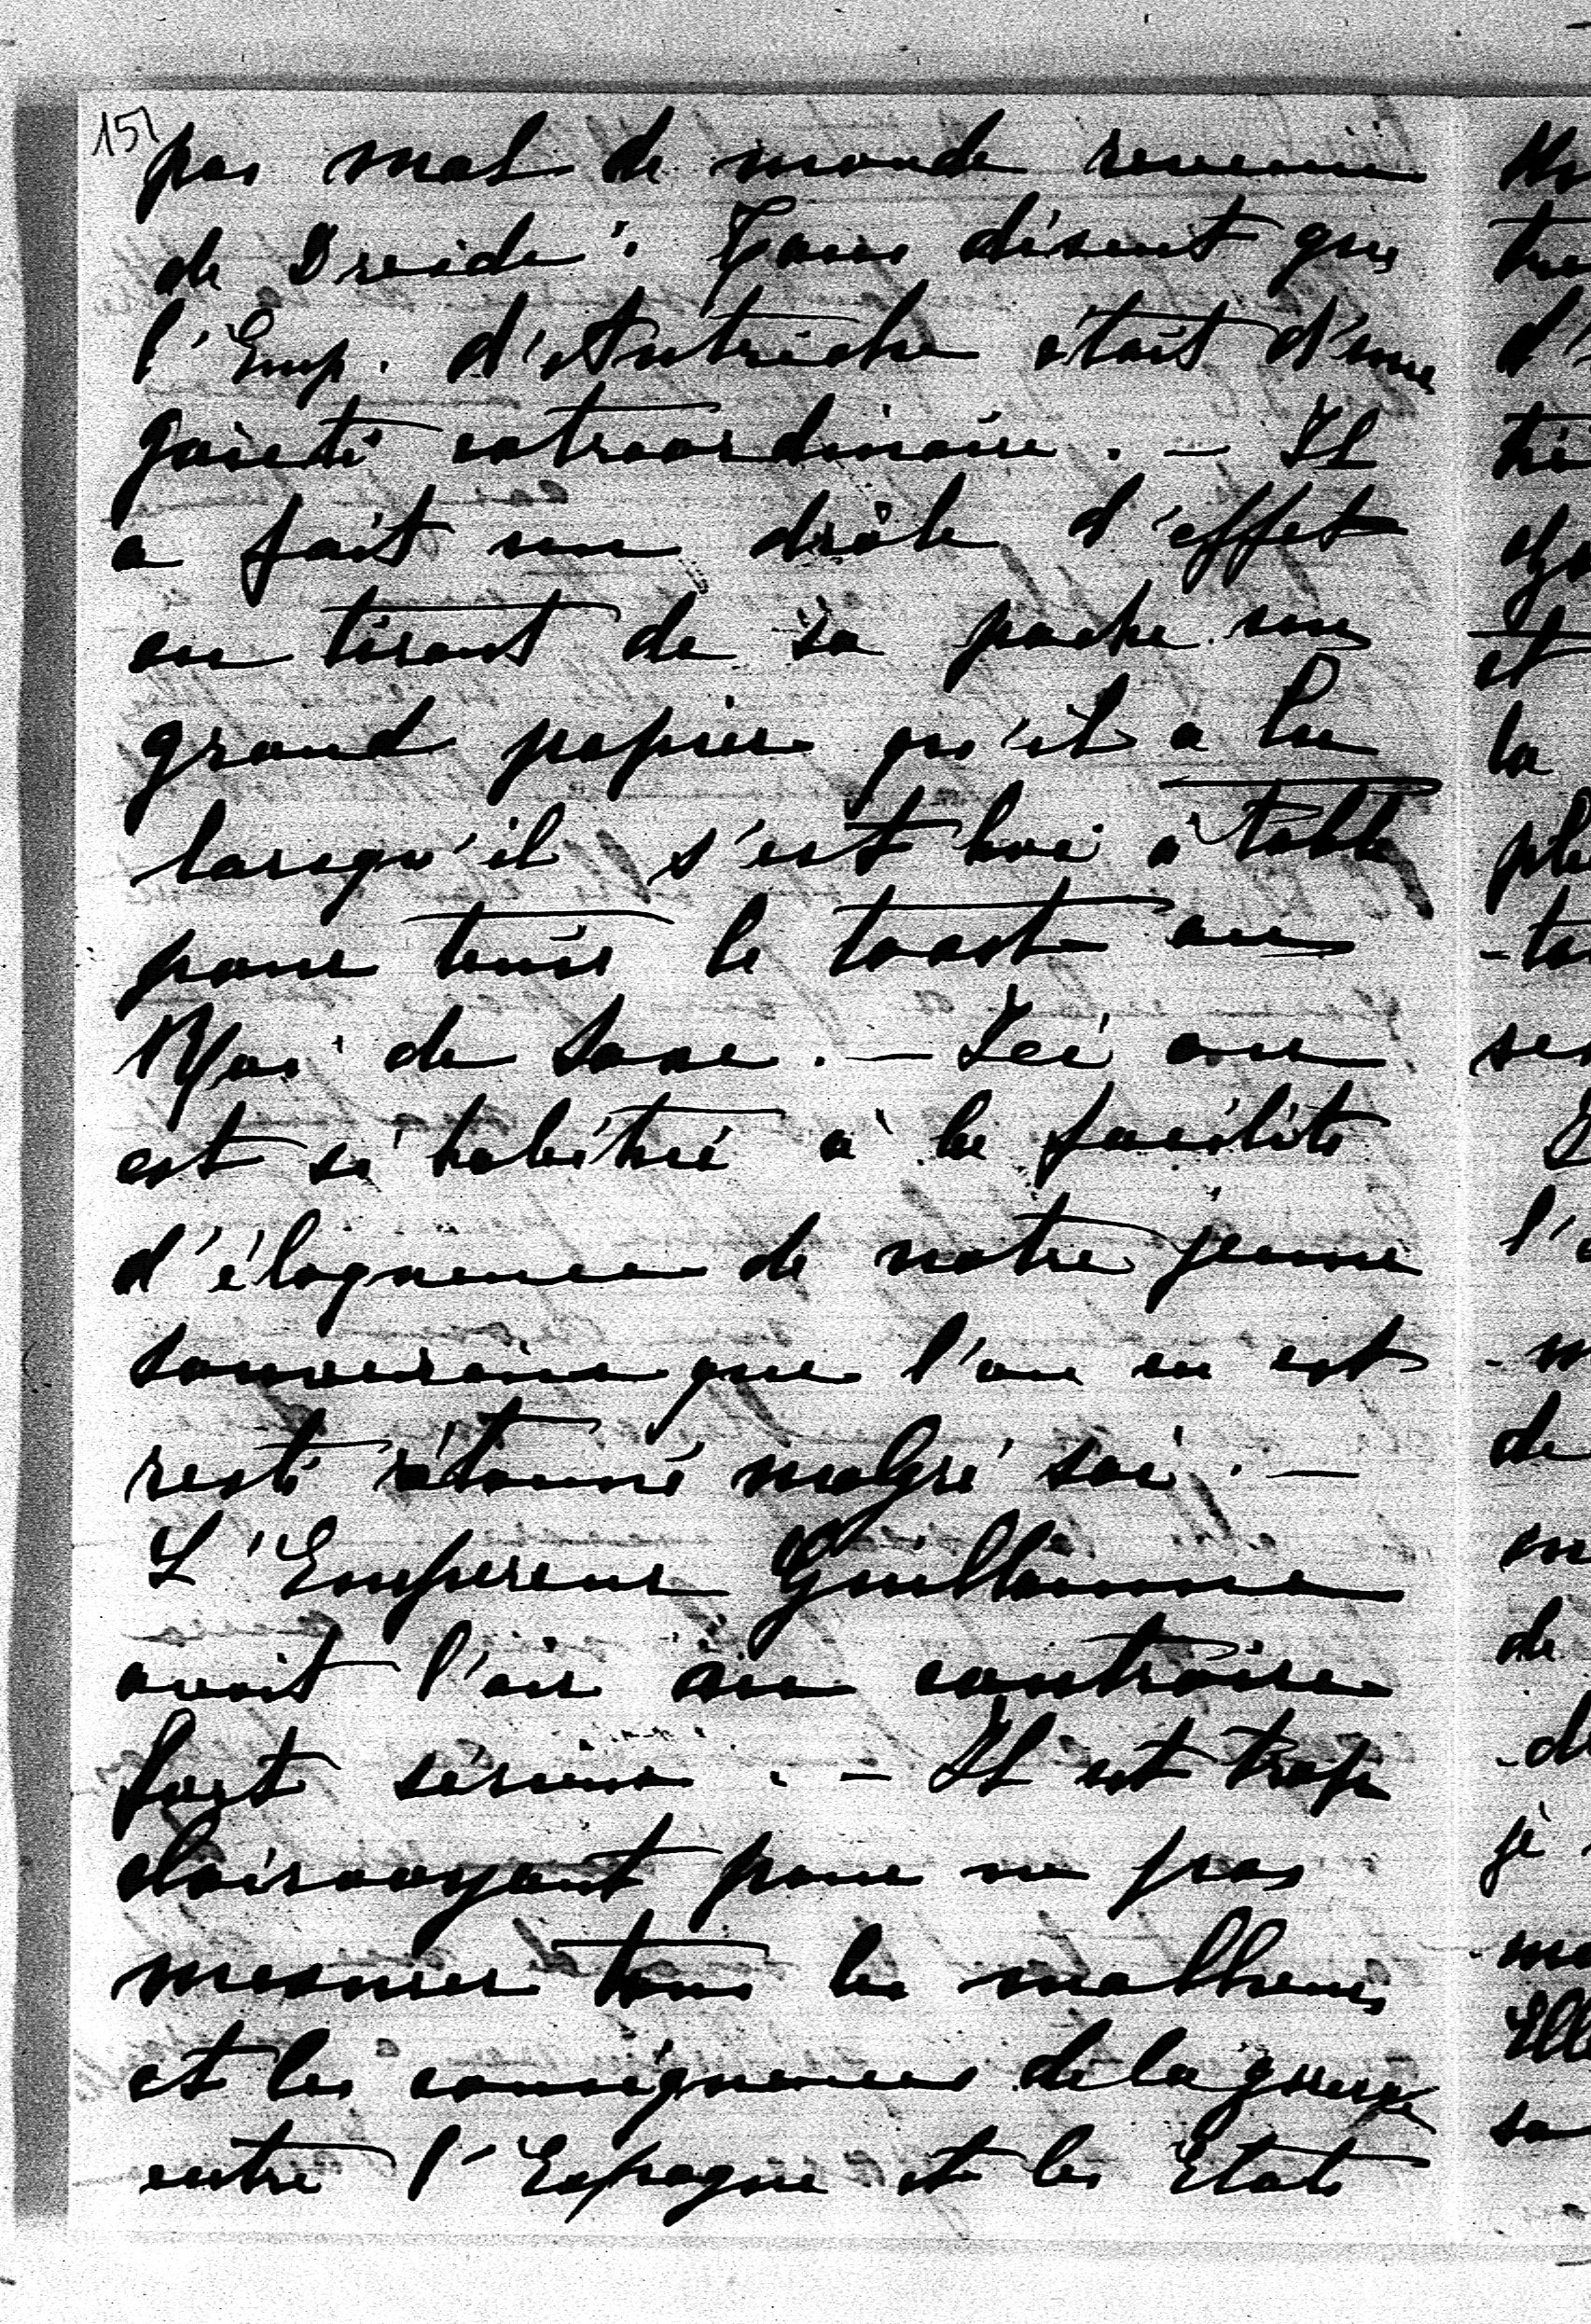 151
pas mal de monde revenu
de Dresde. Tous disent que
l'Emp. d'Autriche était d'une
gaieté extraordinaire. — Il
a fait un drôle d'effet
en tirant de sa poche un
grand papier qu'il a lu
lorsqu'il s'est levé à table
pour tenir le toast au
Roi de Saxe. — Ici on
est si habitué à la facilité
d'éloquence de notre jeune
souverain que l'on en est
resté étonné malgré soi. —
L'Empereur Guillaume
avait l'air au contraire
fort sérieux. — Il est trop
clairvoyant pour ne pas
mesurer tous les malheurs
et les conséquences de la guerre
entre l'Espagne et les Etats